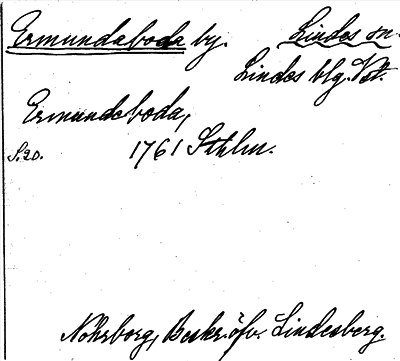 Ermundaboda by. Lindes sn.
Lindes blg. Vstm.
Ermundeboda,
S. 20. 1761 Sthlm.
Nohrborg, Beskr. öfv. Lindesberg.